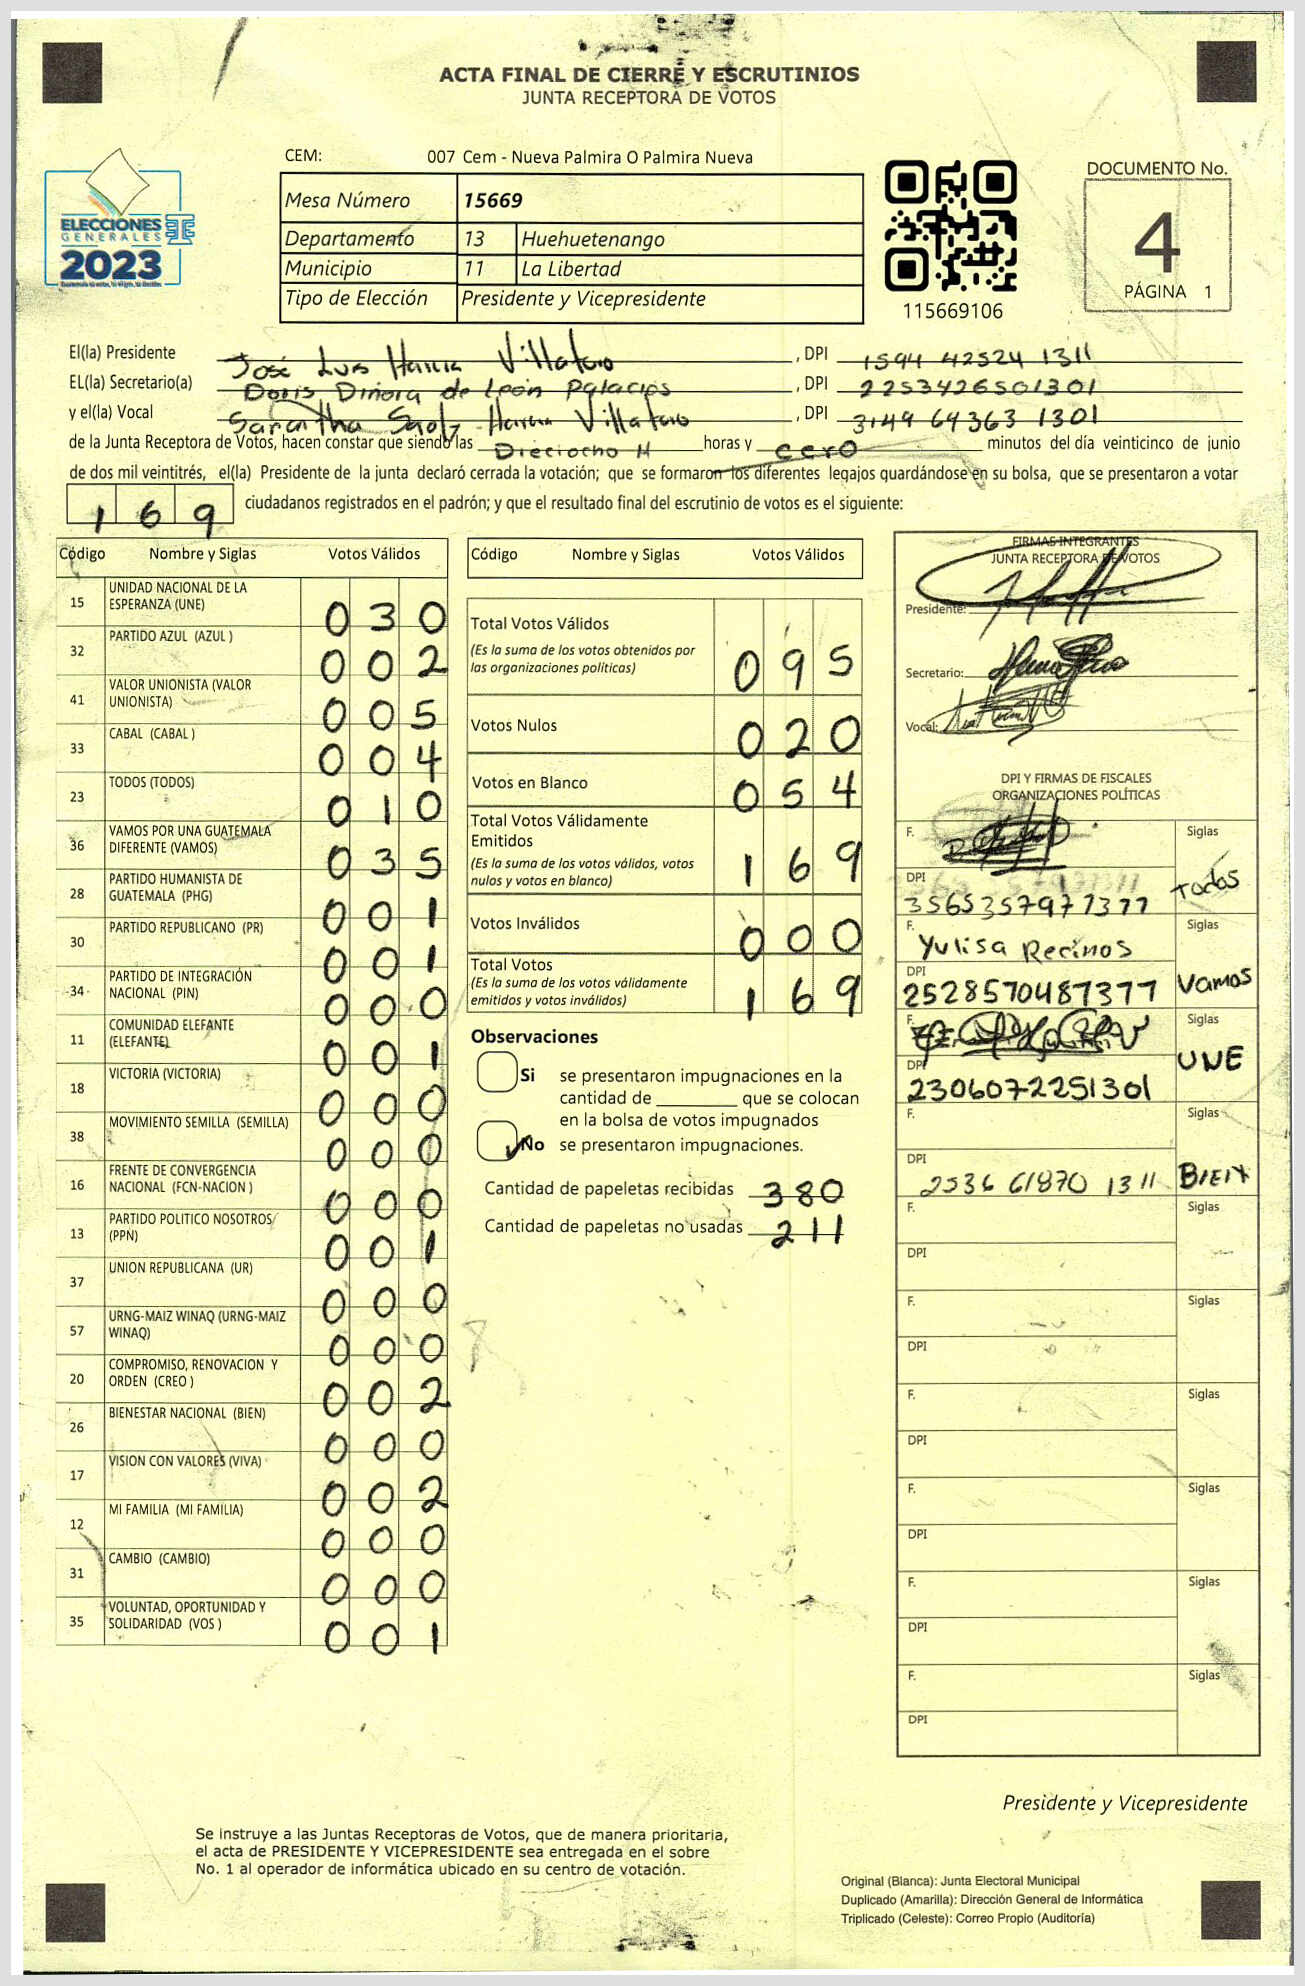 ACTA FINAL DE CIERRE Y ESCRUTINIOS
JUNTA RECEPTORA DE VOTOS
CEM: 007 Cem - Nueva Palmira O Palmira Nueva
ELECCIONES
GENERALES
2023
Mesa Número 15669
Departamento 13 Huehuetenango
Municipio 11 La Libertad
Tipo de Elección Presidente y Vicepresidente
115669106
DOCUMENTO No.
4
PÁGINA 1
El(la) Presidente José Luis Villatoro , DPI 1594 42524 1311
EL(la) Secretario(a) Doris Dinora de León Palacios , DPI 2253426501301
y el(la) Vocal Samantha Villatoro , DPI 3149 69363 1301
de la Junta Receptora de Votos, hacen constar que siendo las Dieciocho H horas y cero minutos del día veinticinco de junio
de dos mil veintitrés, el(la) Presidente de la junta declaró cerrada la votación; que se formaron los diferentes legajos quardándose en su bolsa, que se presentaron a votar
169 ciudadanos registrados en el padrón; y que el resultado final del escrutinio de votos es el siguiente:
Código Nombre y Siglas Votos Válidos
15 UNIDAD NACIONAL DE LA ESPERANZA (UNE) 030
32 PARTIDO AZUL (AZUL ) 002
41 VALOR UNIONISTA (VALOR UNIONISTA) 005
33 CABAL (CABAL ) 004
23 TODOS (TODOS) 010
36 VAMOS POR UNA GUATEMALA DIFERENTE (VAMOS) 035
28 PARTIDO HUMANISTA DE GUATEMALA (PHG) 001
30 PARTIDO REPUBLICANO (PR) 001
34 PARTIDO DE INTEGRACIÓN NACIONAL (PIN) 000
11 COMUNIDAD ELEFANTE (ELEFANTE) 001
18 VICTORIA (VICTORIA) 000
38 MOVIMIENTO SEMILLA (SEMILLA) 000
16 FRENTE DE CONVERGENCIA NACIONAL (FCN-NACION ) 000
13 PARTIDO POLITICO NOSOTROS (PPN) 001
37 UNION REPUBLICANA (UR) 000
57 URNG-MAIZ WINAQ (URNG-MAIZ WINAQ) 000
20 COMPROMISO, RENOVACION Y ORDEN (CREO ) 002
26 BIENESTAR NACIONAL (BIEN) 000
17 VISION CON VALORES (VIVA) 002
12 MI FAMILIA (MI FAMILIA) 000
31 CAMBIO (CAMBIO) 000
35 VOLUNTAD, OPORTUNIDAD Y SOLIDARIDAD (VOS ) 001
Código Nombre y Siglas Votos Válidos
Total Votos Válidos 095
(Es la suma de los votos obtenidos por
las organizaciones políticas)
Votos Nulos 020
Votos en Blanco 054
Total Votos Válidamente
Emitidos 169
(Es la suma de los votos válidos, votos
nulos y votos en blanco)
Votos Inválidos 000
Total Votos 169
(Es la suma de los votos válidamente
emitidos y votos inválidos)
Observaciones
Si se presentaron impugnaciones en la
cantidad de ________ que se colocan
en la bolsa de votos impugnados
No se presentaron impugnaciones.
Cantidad de papeletas recibidas 380
Cantidad de papeletas no usadas 211
FIRMAS INTEGRANTES
JUNTA RECEPTORA DE VOTOS
Presidente:
Secretario:
Vocal:
DPI Y FIRMAS DE FISCALES
ORGANIZACIONES POLÍTICAS
F. Siglas
DPI Todos
F. Yulisa Recinos Siglas
DPI 2528570487377 Vamos
F. Siglas
DPI 2306072251301 UNE
F. Siglas
DPI 2536 61870 1311 BIEN
F. Siglas
DPI
F. Siglas
DPI
F. Siglas
DPI
F. Siglas
DPI
F. Siglas
DPI
F. Siglas
DPI
Presidente y Vicepresidente
Se instruye a las Juntas Receptoras de Votos, que de manera prioritaria,
el acta de PRESIDENTE Y VICEPRESIDENTE sea entregada en el sobre
No. 1 al operador de informática ubicado en su centro de votación.
Original (Blanca): Junta Electoral Municipal
Duplicado (Amarilla): Dirección General de Informática
Triplicado (Celeste): Correo Propio (Auditoría)